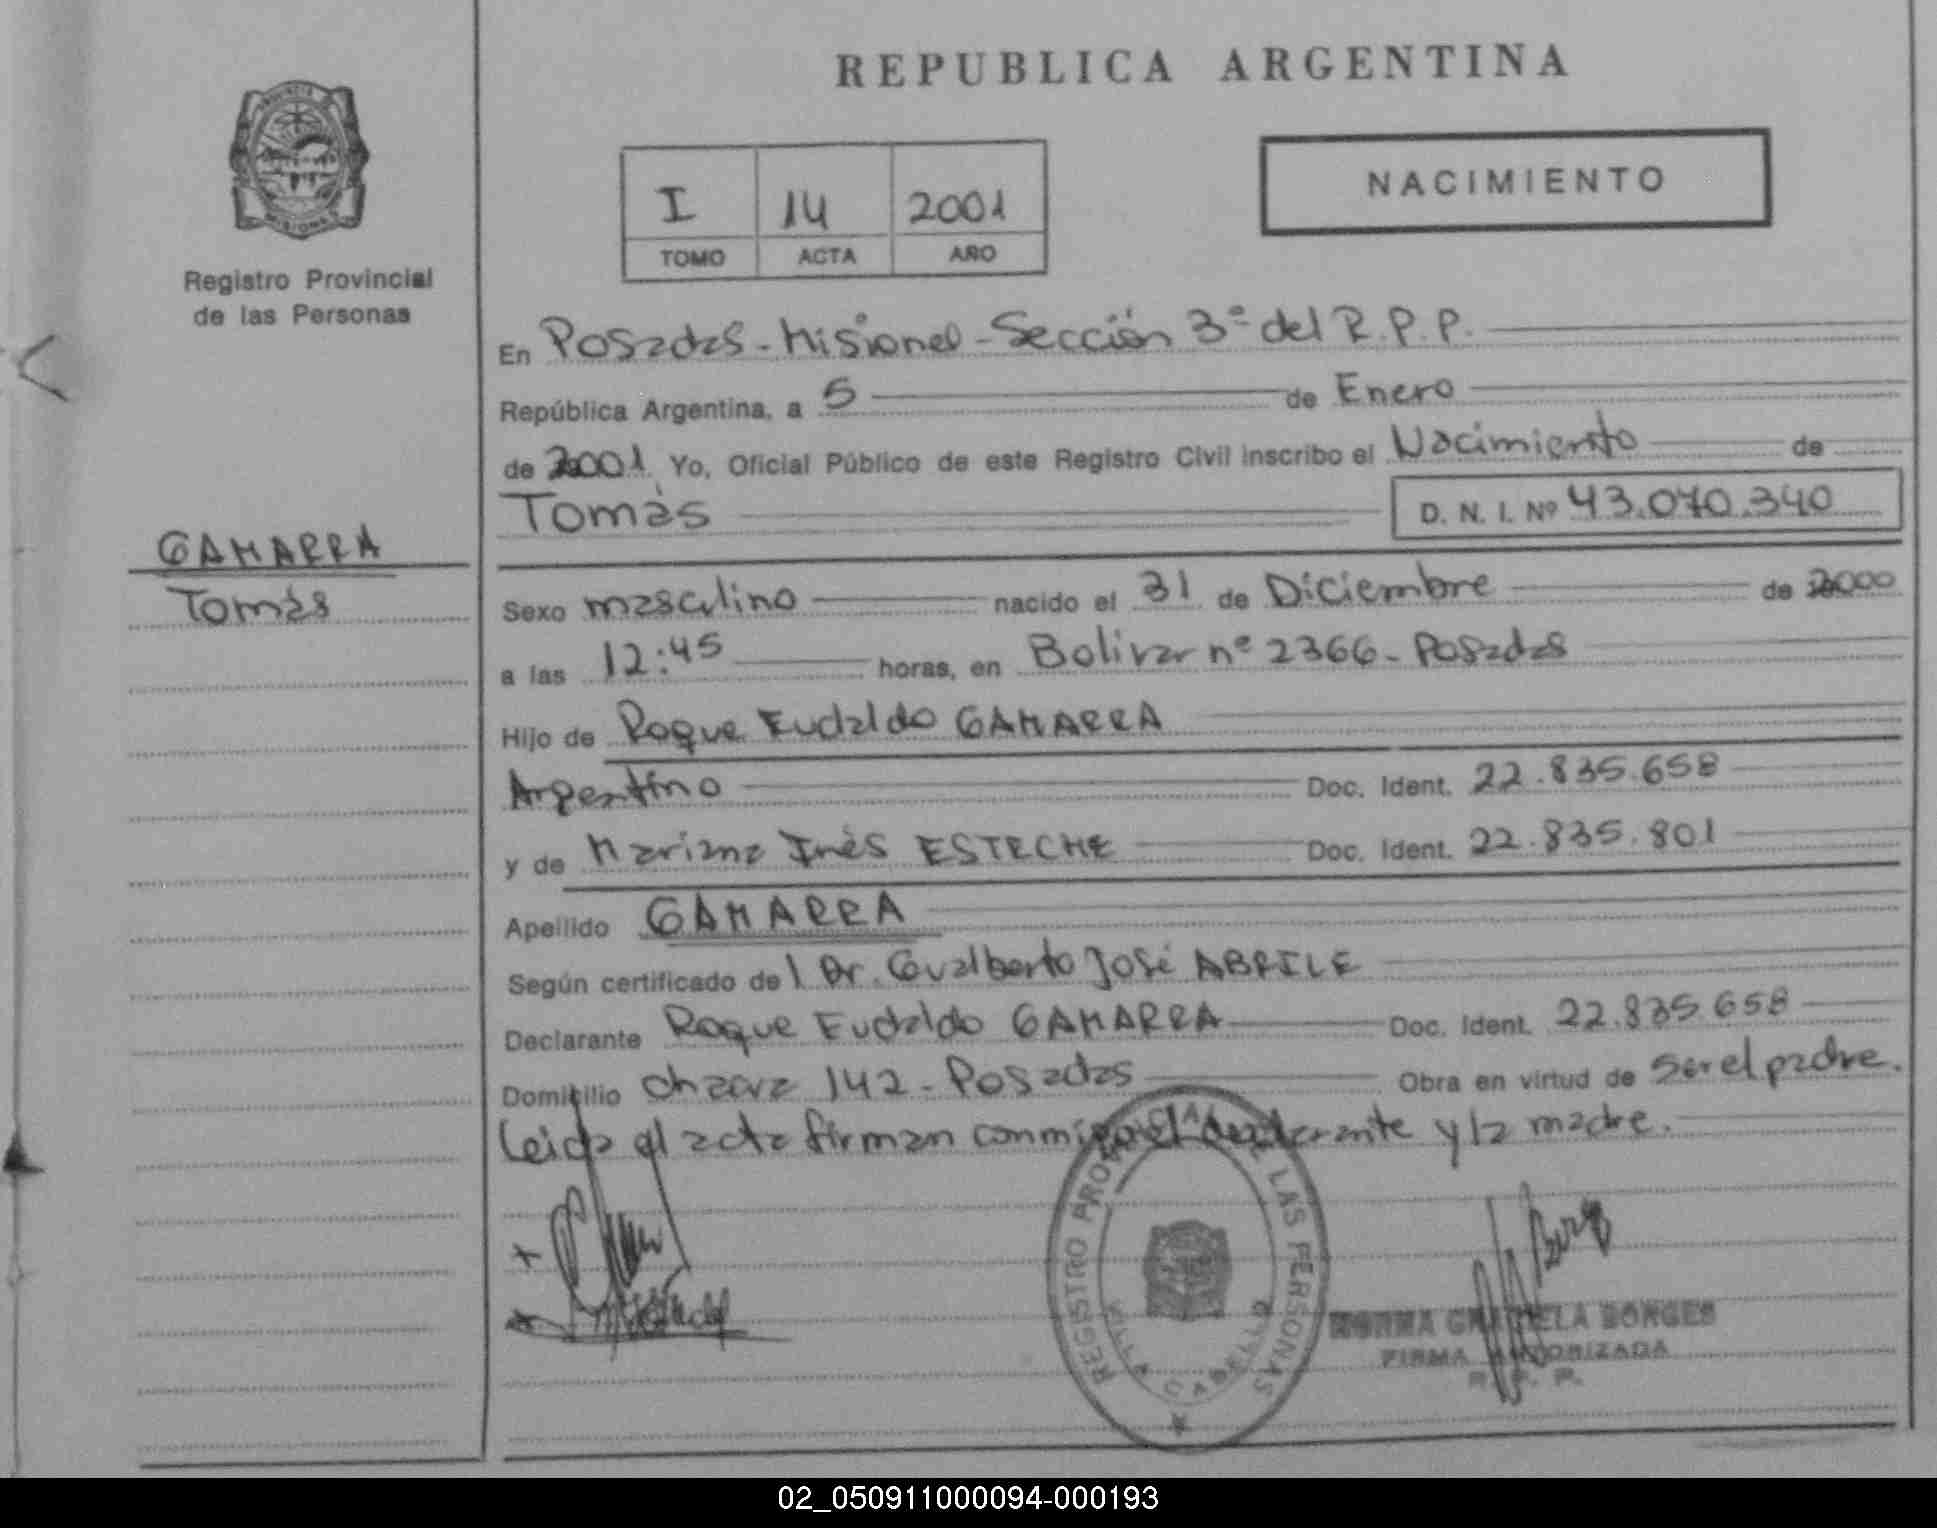 REPUBLICA ARGENTINA
PROVINCIA DE
MISIONES
Registro Provincial
de las Personas
I 14 2001
TOMO ACTA AÑO
NACIMIENTO
En Posadas - Misiones - Sección 3ª del R.P.P.
República Argentina, a 5 de Enero
de 2001 Yo, Oficial Público de este Registro Civil inscribo el Nacimiento de
Tomás D. N. I. Nº 43.070.340
GAMARRA
Tomás
Sexo masculino nacido el 31 de Diciembre de 2000
a las 12:45 horas, en Bolivar nº 2366 - Posadas
Hijo de Roque Eudaldo GAMARRA
Argentino Doc. Ident. 22.835.658
y de Mariana Inés ESTECHE Doc. Ident. 22.835.801
Apellido GAMARRA
Según certificado del Dr. José ABRILE
Declarante Roque Eudaldo GAMARRA Doc. Ident. 22.835.658
Domicilio chacra 142 - Posadas Obra en virtud de ser el padre.
Leida el acta firman conmigo el declarante y la madre.
REGISTRO PROVINCIAL DE LAS PERSONAS
VILLA CABELLO
NORMA GRACIELA BORGES
FIRMA AUTORIZADA
R. P. P.
02_050911000094-000193